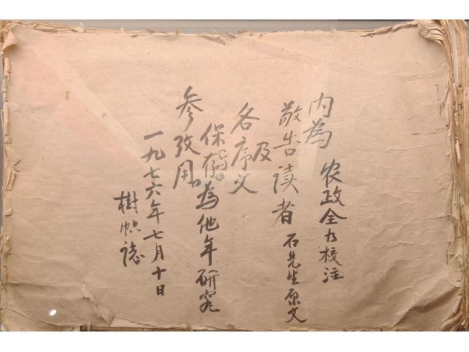 内為 农政全书校注
敬告读者 石先生原文
及
各序文
保存為他年研究
参攷用。
一九七六年七月十日
樹帜誌